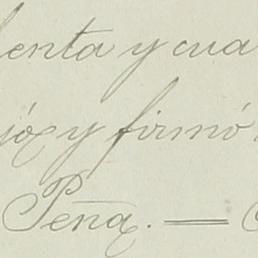 lenta y cua
jó y firmó.
Peña. —